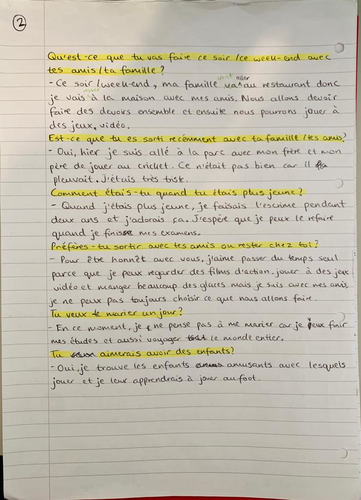 ②
Qu'est-ce que tu vas faire ce soir/ce week-end avec
tes amis/ta famille?
vont aller
- Ce soir/week-end, ma famille va au restaurant donc
je vais à la maison avec mes amis. Nous allons devoir
faire des devoirs ensemble et ensuite nous pourrons jouer à
des jeux vidéo.
Est-ce que tu es sorti récemment avec ta famille/tes amis?
- Oui, hier je suis allé à la parc avec mon frère et mon
père de jouer au cricket. Ce n'était pas bien car il
pleuvait. J'étais très triste.
Comment étais-tu quand tu étais plus jeune?
- Quand j'étais plus jeune, je faisais l'escrime pendant
deux ans et j'adorais ça. J'espère que je peux le refaire
quand je finisse mes examens.
Préfères-tu sortir avec tes amis ou rester chez toi?
- Pour être honnêt avec vous, j'aime passer du temps seul
parce que je peux regarder des films d'action, jouer à des jeux
vidéo et manger beaucoup des glaces mais je suis avec mes amis,
je ne peux pas toujours choisir ce que nous allons faire.
Tu veux te marier un jour?
- En ce moment, je ne pense pas à me marier car je veux finir
mes études et aussi voyager le monde entier.
Tu aimerais avoir des enfants?
- Oui, je trouve les enfants amusants avec lesquels
jouer et je leur apprendrais à jouer au foot.